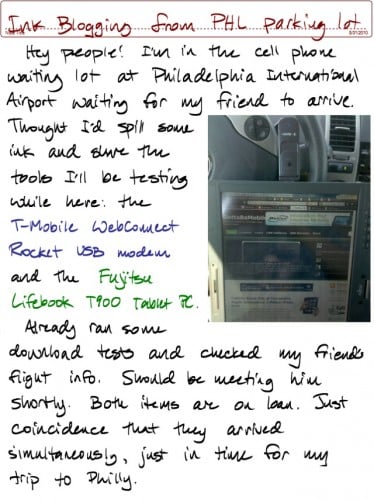 Ink Blogging from PHL parking lot
5/31/2010
Hey people! I'm in the cell phone
waiting lot at Philadelphia International
Airport waiting for my friend to arrive.
Thought I'd spill some
ink and share the
tools I'll be testing
while here: the
T-Mobile WebConnect
Rocket USB modem
and the Fujitsu
Lifebook T900 Tablet PC.
Already ran some
download tests and checked my friend's
flight info. Should be meeting him
shortly. Both items are on loan. Just
coincidence that they arrived
simultaneously, just in time for my
trip to Philly.
GottaBeMobile